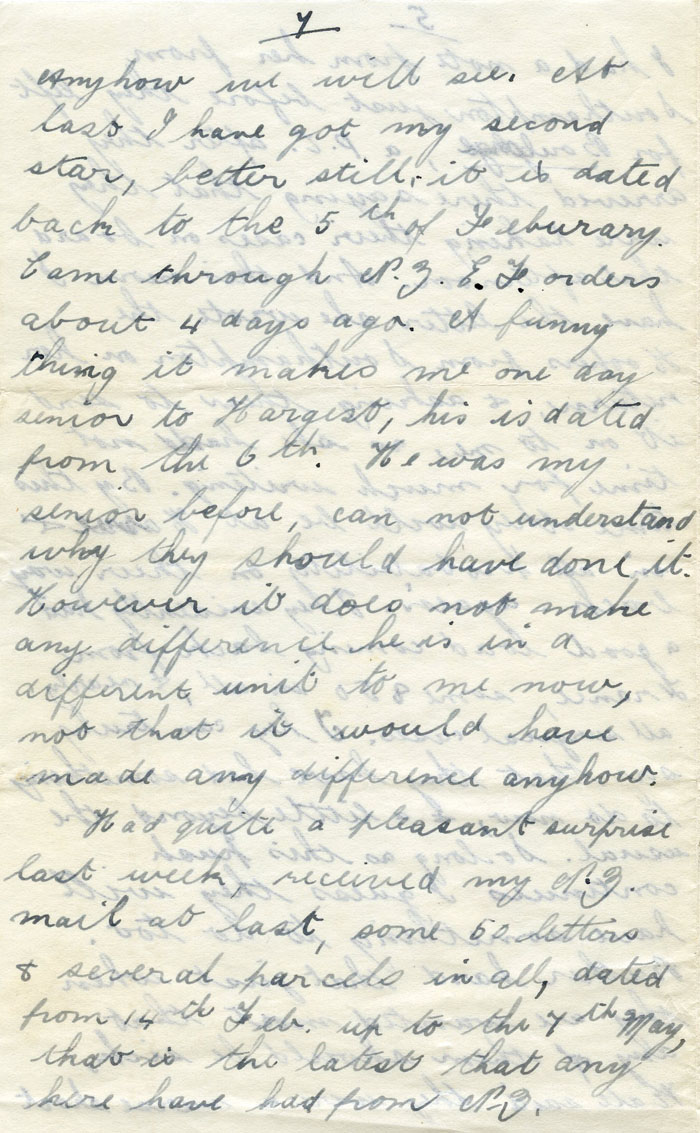 7
Anyhow we will see. At
last I have got my second
star, better still, it is dated
back to the 5th of Feburary.
Came through N.Z. E.F. orders
about 4 days ago. A funny
thing it makes me one day
senior to Hargest, his is dated
from the 6th. He was my
senior before, can not understand
why they should have done it.
However it does not make
any difference he is in a
different unit to me now,
not that it would have
made any difference anyhow.
Had quite a pleasant surprise
last week, received my N.Z.
mail at last, some 60 letters
& several parcels in all, dated
from 14th Feb. up to the 7th May,
that is the latest that any
here have had from N.Z.